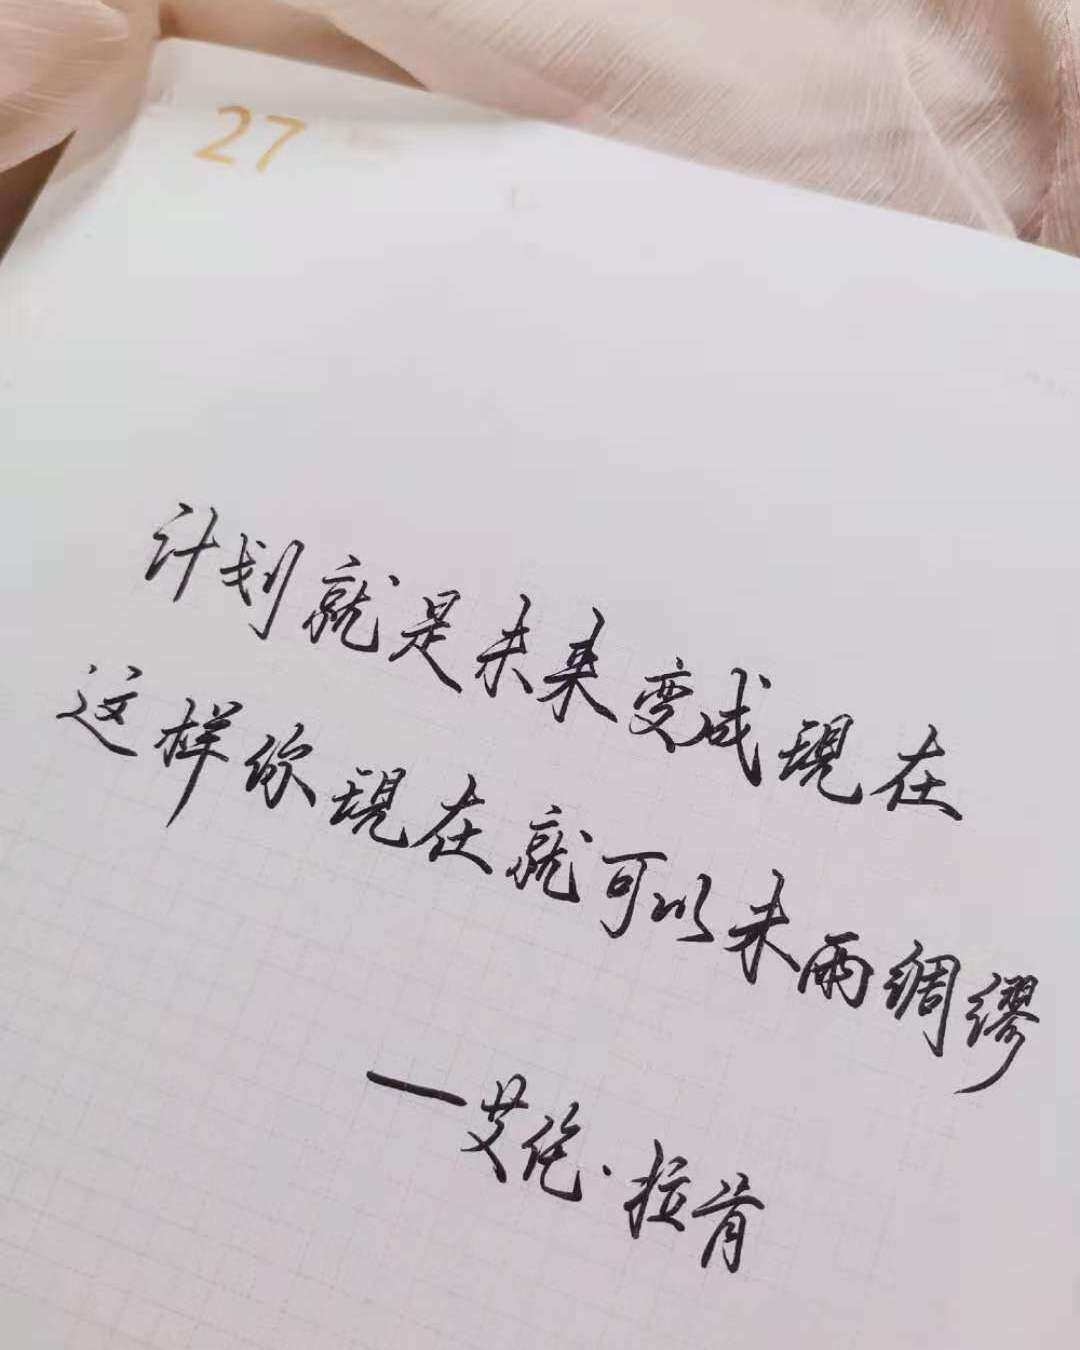 27
计划就是未来变成現在
这样你現在就可以未雨绸缪
—艾伦·拉肯